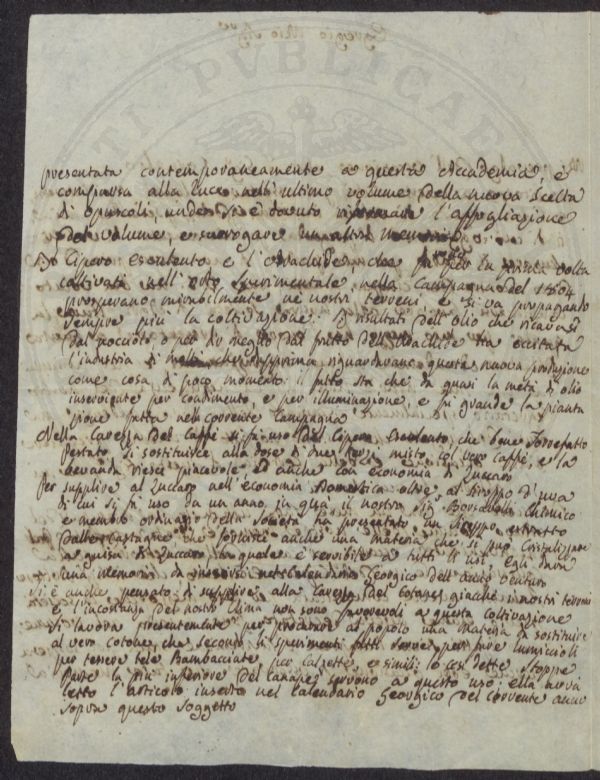 presentata contemporaneamente a questa Accademia, è
comparsa alla luce nell'ultimo volume della nuova Scelta
di Opuscoli, unde si è dovuto l'associazione
del volume, e surrogare un'altra memoria
Il Cipero esculento e l'Arachide che per la prima volta
coltivati nell'orto sperimentale nella Campagna del 1804
prosperano mirabilmente ne nostri terreni e si va propagando
sempre più la coltivazione. I risultati dell'olio che ricavasi
dal nocciuolo o per dir meglio dal frutto dell'Arachide ha eccitata
l'industria di molti che dapprima riguardavano questa nuova produzione
come cosa di poco momento: il fatto sta che da quasi la metà di olio
inserviente per condimento, e per illuminazione, e fu grande la pianta
gione fatta nella corrente Campagna
Nella Carezza del Caffè si fa uso del Cipero Esculento, che bene Torrefatto
Pestato si sostituisce alla dose di due terzi misto col vero caffè, e la
bevanda riesce piacevole ed anche con economia di Zuccaro
Per supplire al Zuccaro nell'economia Domestica oltre al siroppo d'uva
di cui si fa uso da un anno in qua il nostro Sig. Chimico
e membro ordinario della Società ha presentato un siroppo estratto
dalle Castagne che fornisce anche una materia che si può Cristallizzare
a guisa di Zuccaro la quale è servibile a tutti li usi. Egli darà
una memoria da inserirsi nel Calendario Georgico dell'anno venturo
Si è anche pensato di supplire alla Carezza del Cotone, giacché i nostri terreni
e l'incostanza del nostro Clima non sono favorevoli a questa coltivazione
Si lavora presentemente per procurare al popolo una materia da sostituire
al vero cotone, che secondo li sperimenti fatti serve per fare lumicioli
per tessere tele Bambaciate per calzette, e simili: le così dette Stoppe
Parte la più inferiore del Canape servono a questo uso; ella avrà
letto l'articolo inserto nel Calendario Georgico del corrente anno
sopra questo soggetto